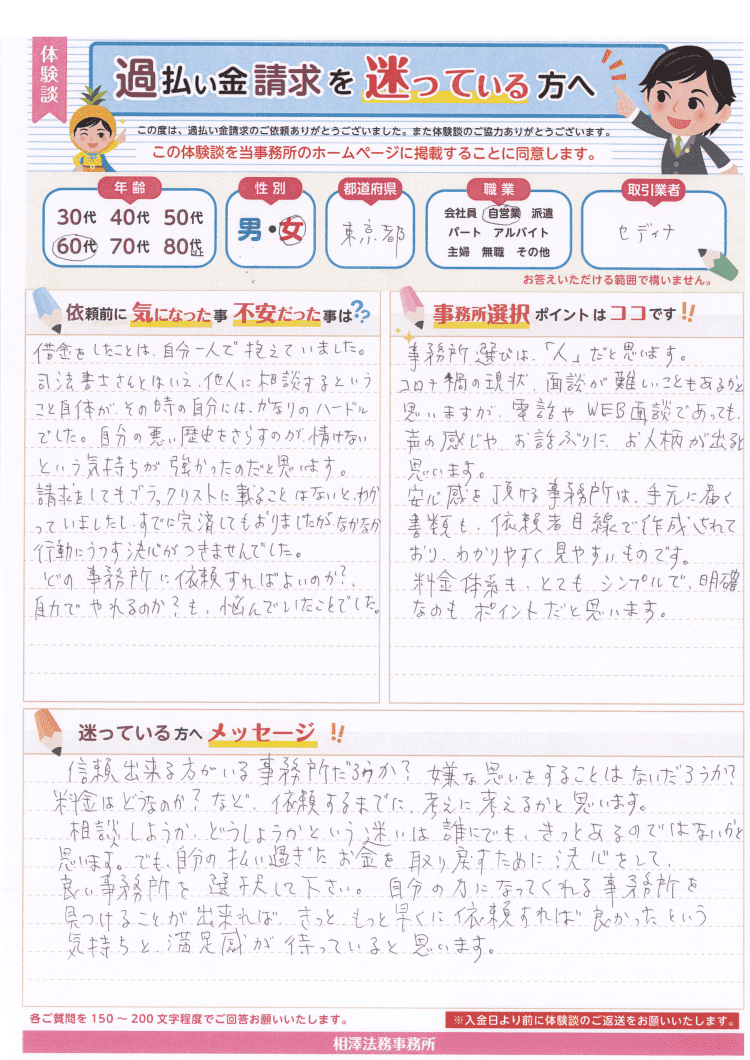 体験談
過払い金請求を迷っている方へ
この度は、過払い金請求のご依頼ありがとうございました。また体験談のご協力ありがとうございます。
この体験談を当事務所のホームページに掲載することに同意します。
年齢
30代 40代 50代
60代 70代 80代以上
性別
男・女
都道府県
東京都
職業
会社員 自営業 派遣
パート アルバイト
主婦 無職 その他
取引業者
セディナ
お答えいただける範囲で構いません。
依頼前に気になった事 不安だった事は??
借金をしたことは、自分一人で抱えていました。
司法書士さんとはいえ、他人に相談するという
こと自体が、その時の自分には、かなりのハードル
でした。自分の悪い歴史をさらすのが、情けない
という気持ちが強かったのだと思います。
請求をしてもブラックリストに載ることはないと、わか
っていましたし、すでに完済してもおりましたが、なかなか
行動にうつす決心がつきませんでした。
どの事務所に依頼すればよいのか?、
自力でやれるのか?も、悩んでいたことでした。
事務所選択ポイントはココです!!
事務所選びは、「人」だと思います。
コロナ禍の現状、面談が難しいこともあるかと
思いますが、電話やWEB面談であっても、
声の感じや、お話ぶりに、お人柄が出ると
思います。
安心感を頂ける事務所は、手元に届く
書類も、依頼者目線で作成されて
おり、わかりやすく見やすいものです。
料金体系も、とてもシンプルで、明確
なのもポイントだと思います。
迷っている方へメッセージ!!
信頼出来る方がいる事務所だろうか? 嫌な思いをすることはないだろうか?
料金はどうなのか? など、依頼するまでに、考えに考えるかと思います。
相談しようか、どうしようかという迷いは誰にでも、きっとあるのではないかと
思います。でも、自分の払い過ぎたお金を取り戻すために決心をして、
良い事務所を選択して下さい。自分の力になってくれる事務所を
見つけることが出来れば、きっと、もっと早くに依頼すれば良かったという
気持ちと満足感が待っていると思います。
各ご質問を150～200文字程度でご回答お願いいたします。
※入金日より前に体験談のご返送をお願いいたします。
相澤法務事務所